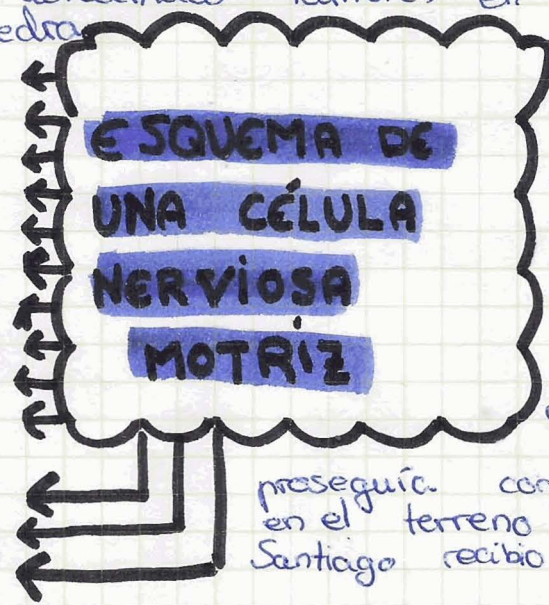 en
edra
ESQUEMA DE
UNA CÉLULA
NERVIOSA
MOTRIZ
proseguía con
en el terreno
Santiago recibio